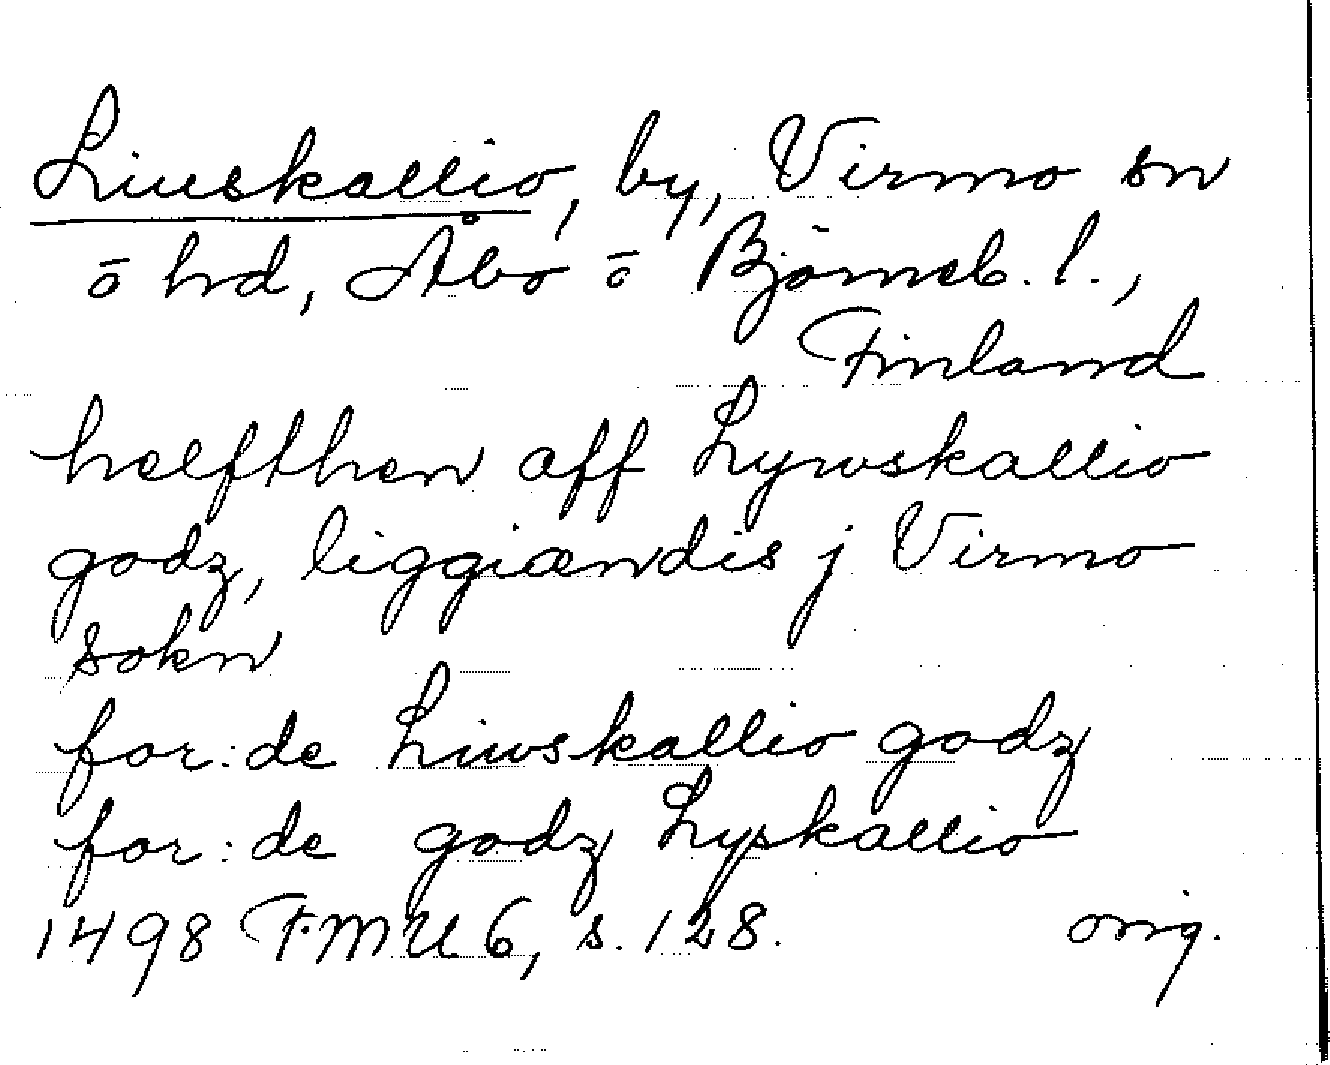 Liuskallio, by, Virmo sn
o hd, Åbo o Björneb. l.,
Finland
helfthen aff Lywskallio
godz, liggiændis j Virmo
sokn
for:de Liwskallio godz
for:de godz Lyskallio
1498 FMU 6, s. 128. orig.